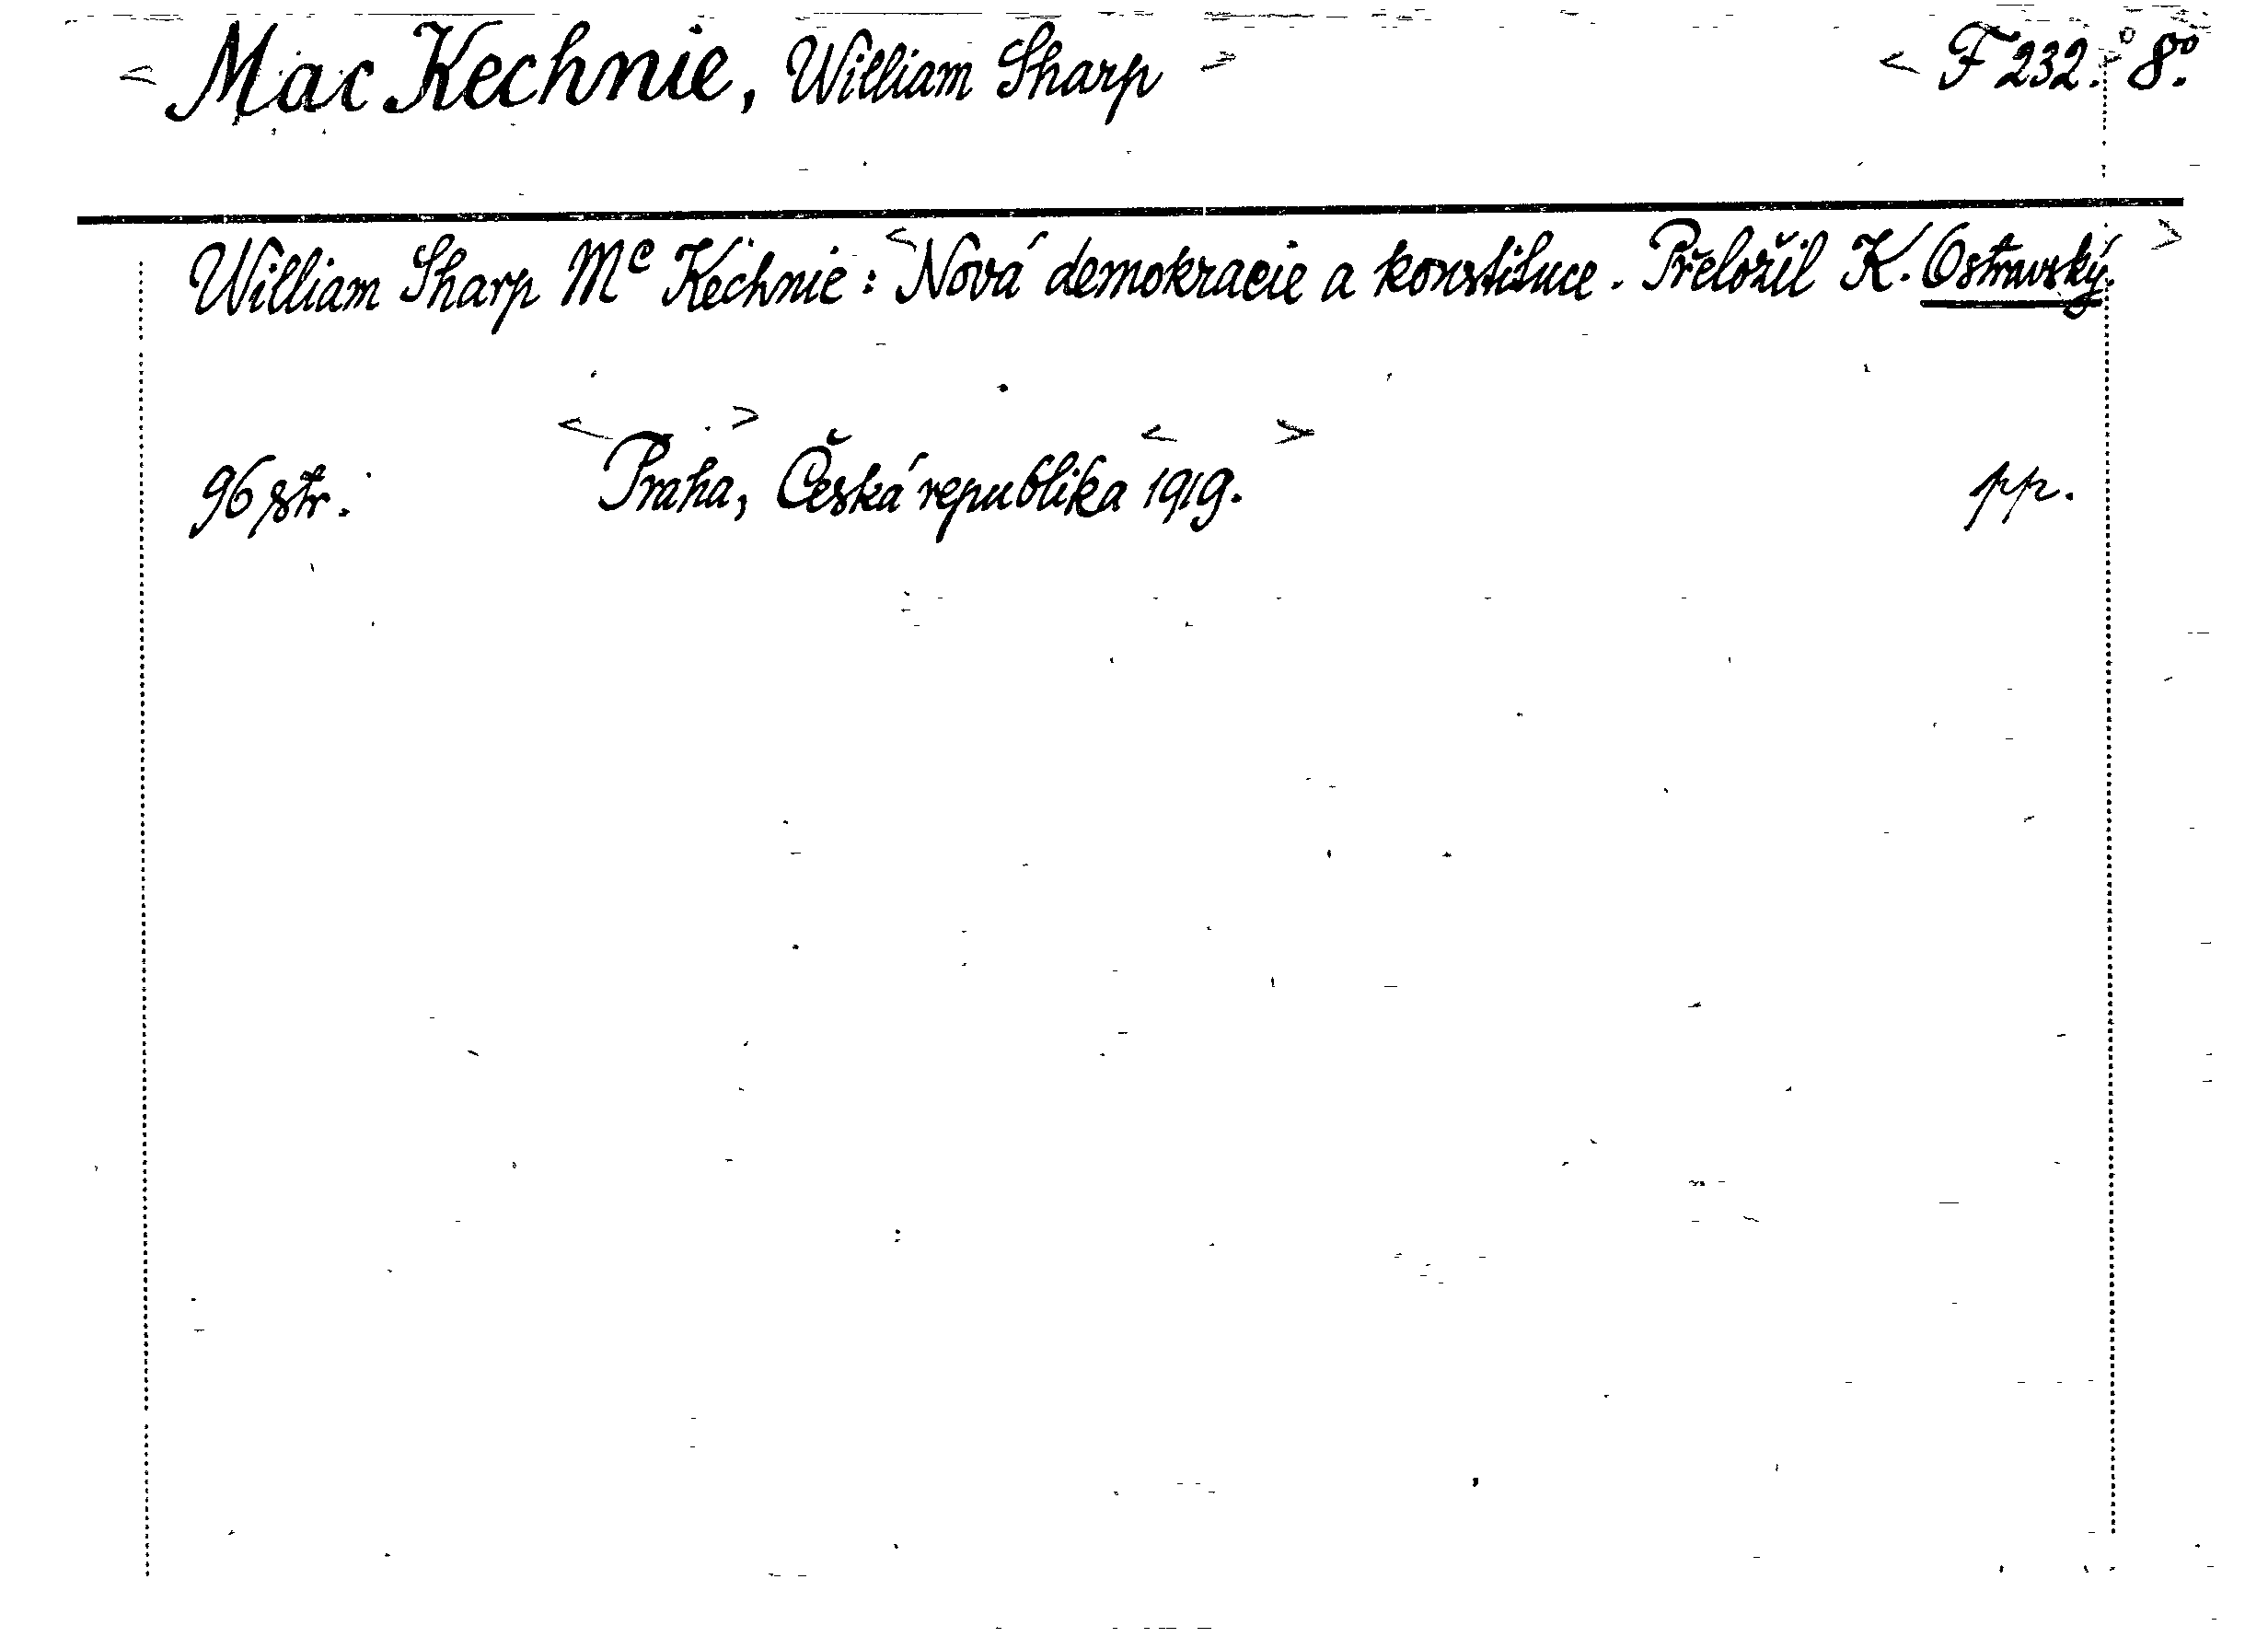 < Mac Kechnie, William Sharp > < F 232. 8°.
William Sharp Mc Kechnie: < Nová demokracie a konstituce. Přeložil K. Ostravský. >
96 str. < Praha, > Česká republika < 1919. > pp.